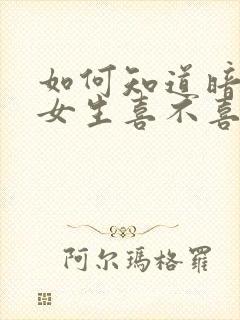 如何知道暗
女生喜不喜
阿尔玛格罗